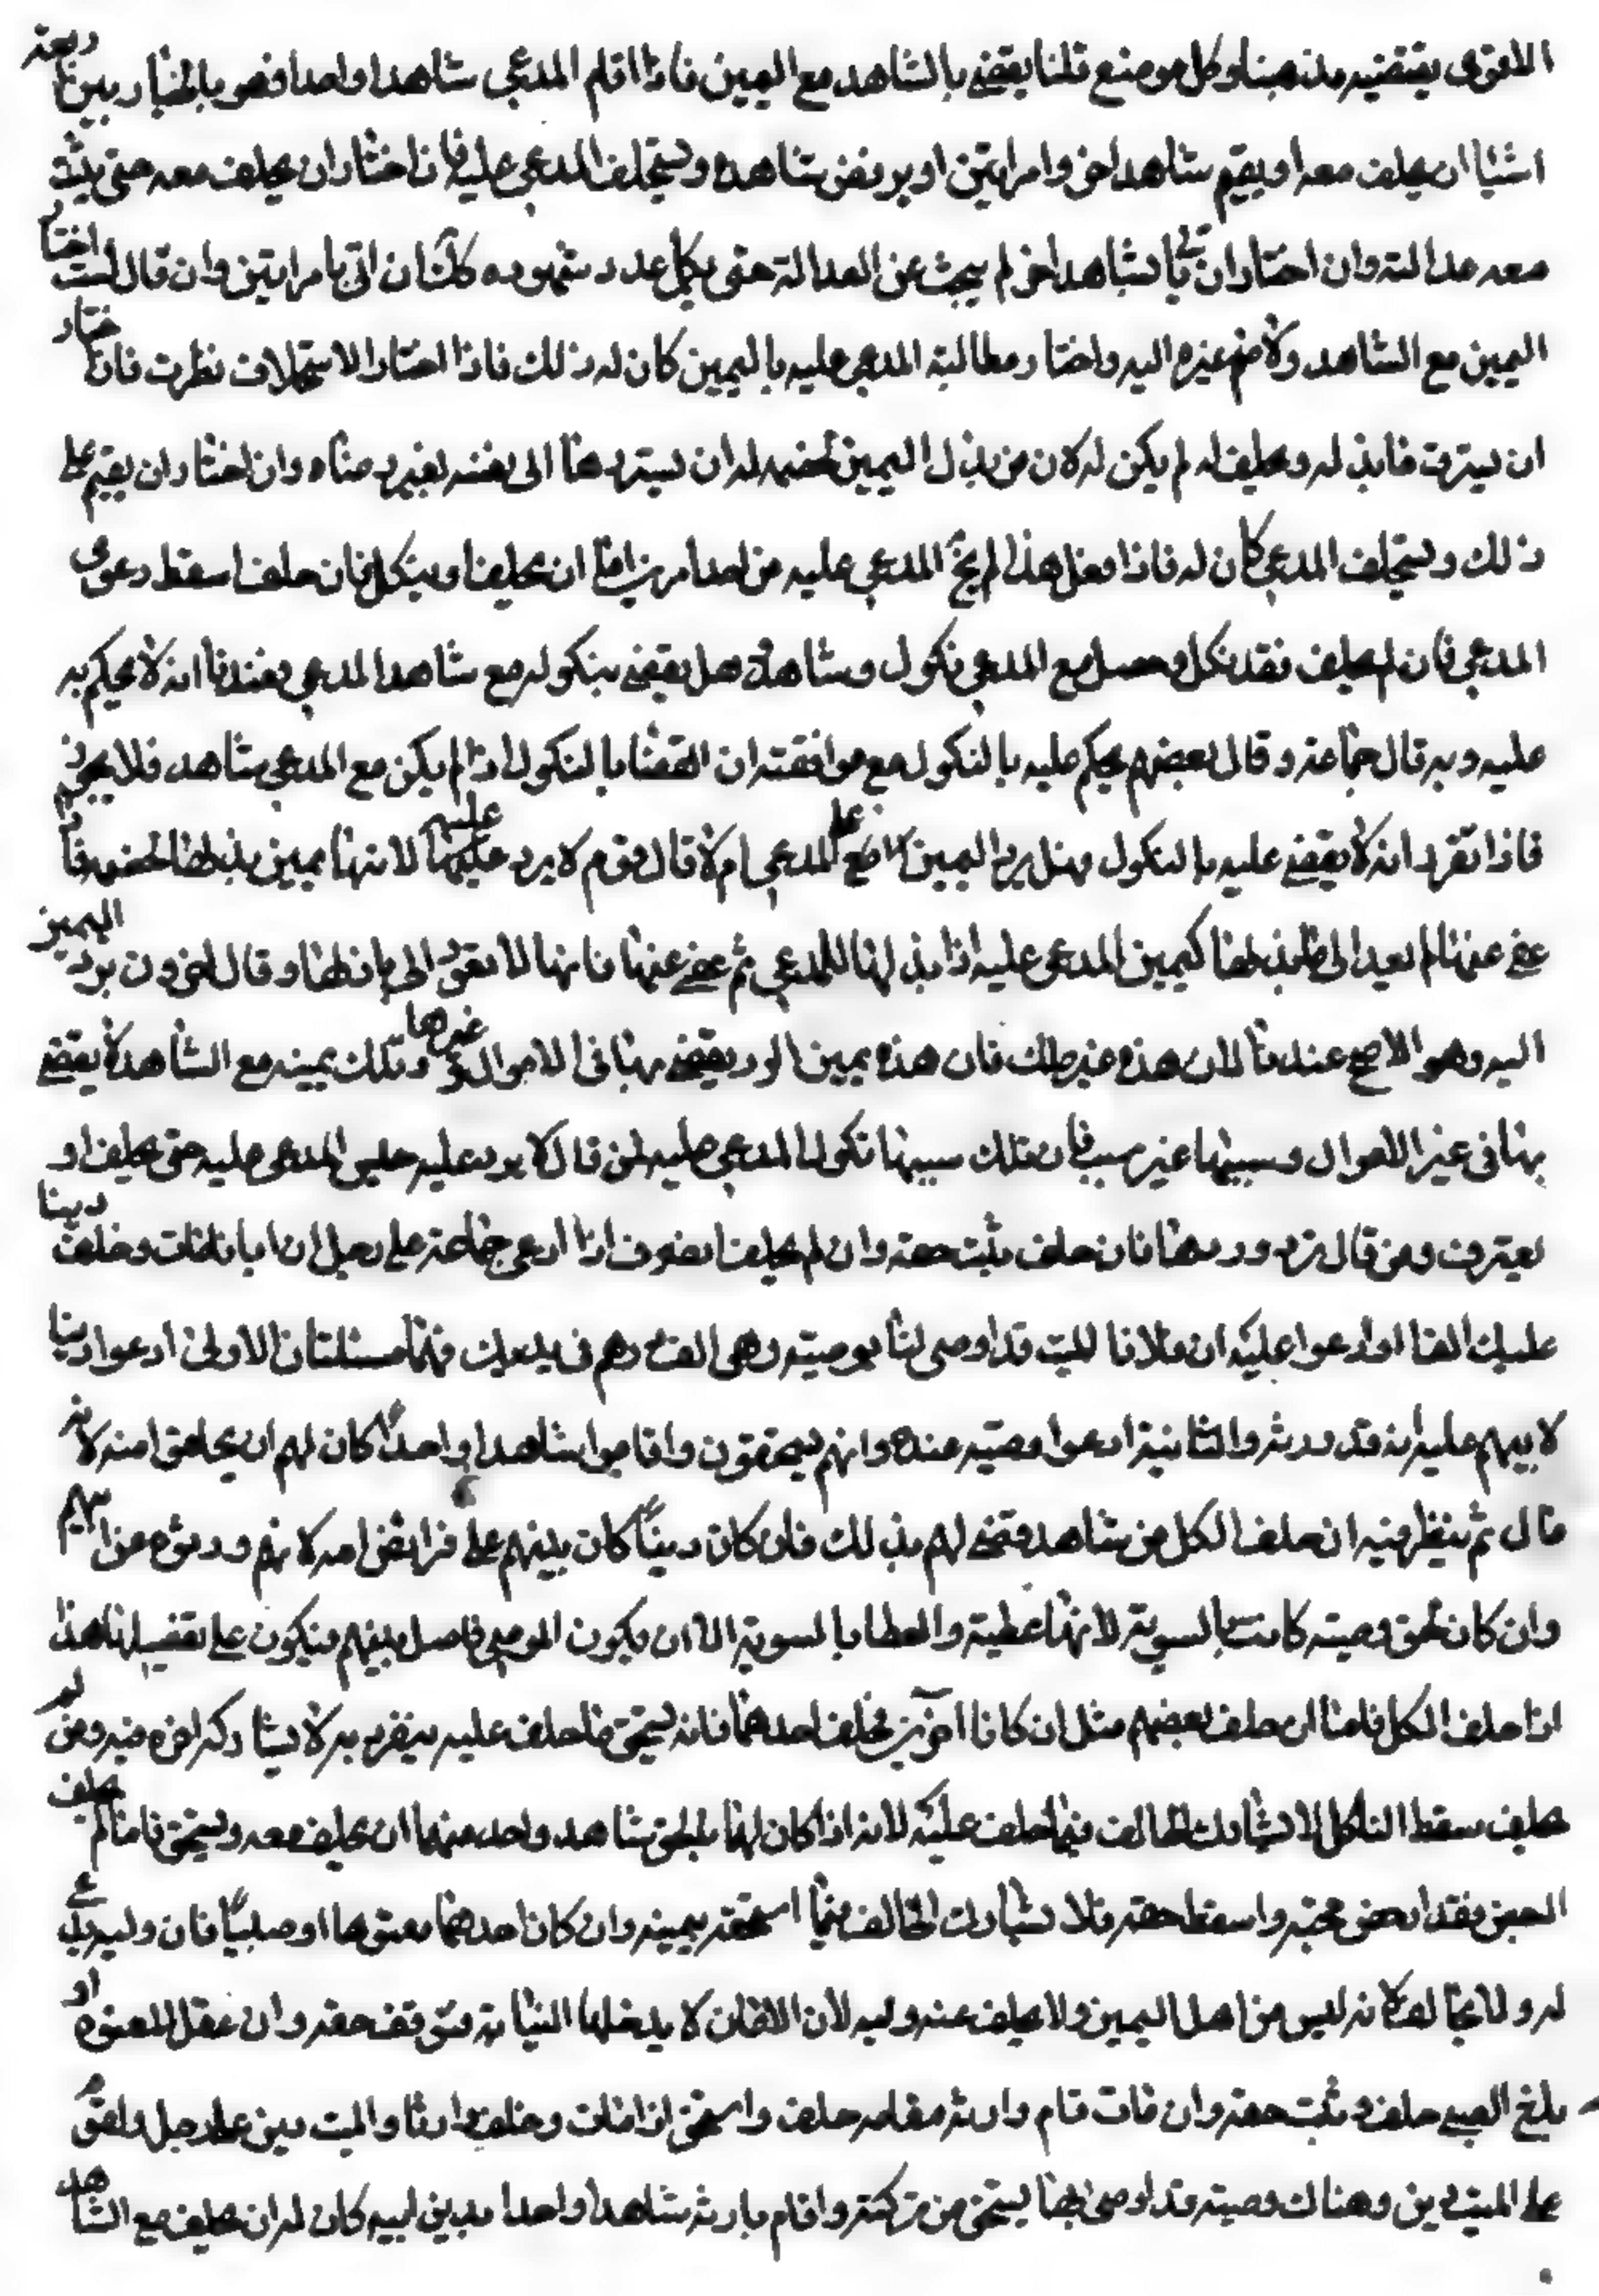 الاقوى يقتضيه مذهبنا وكل موضع قلنا يقضى بالشاهد مع اليمين فاذا اقام المدعي شاهدا واحدا فهو بالخيار بين اربعة
اشياء ان يحلف معه او يقيم شاهدا اخر وامرايتين او يرفض شاهده ويستحلف المدعى عليه فان اختار ان يحلف معه حتى يثبت
معه عدالته وان اختار ان ياتي بشاهد اخر لم يبحث عن العدالة حتى يكمل عدد شهوده كك ان اتى بامرايتين وان قال لست اختار
اليمين مع الشاهد ولا ضم غيره اليه واختار مطالبة المدعى عليه باليمين كان له ذلك فاذا اختار الاستحلاف نظرت فان اختار
ان يسترد ما بذله ويحلف له لم يكن له لان من بذل اليمين لخصمه ان يستردها الى نفسه بغير رضاه وان اختار ان يقيم على
ذلك ويستحلف المدعى كان له فاذا فعل هذا لم يخل المدعى عليه من احد امرين اما ان يحلف او ينكل فان حلف اسقط دعوى
المدعي فان لم يحلف فقد نكل وحصل مع المدعي نكول وشاهد هل يقضى بنكوله مع شاهد المدعي فعندنا انه لا يحكم به
عليه وبه قال جماعة وقال بعضهم يحكم عليه بالنكول مع موافقته ان القضا بالنكول اذا لم يكن مع المدعي شاهد فلا يجوز
فاذا تقرر انه لا يقضى عليه بالنكول فهل يرد اليمين على المدعي ام لا قال قوم لا يرد عليه لانها يمين بذلها لخصمه فاذا
عفى عنها لم يعد الى بذلها كيمين المدعى عليه اذا بذلها للمدعي ثم عفى عنها فانها لا تعود الى باذلها وقال اخرون يرد اليمين
اليه وهو الاصح عندنا لان هذه غير تلك فان هذه يمين الرد يقضى بها في الاموال وغيرها وتلك يمينه مع الشاهد لا يقضى
بها في غير الاموال وسببها غير سببها فان تلك سببها نكول المدعى عليه فمن قال لا يرد عليه حبس المدعى عليه حتى يحلف او
يعترف ومن قال ترد وردها فان حلف ثبت حقه وان لم يحلف انصرف اذا ادعى جماعة على رجل ان ابانا مات وخلف دينا
عليك الفا او ادعوا عليه ان فلانا الميت قد اوصى لنا بوصية وهي الف درهم في يديك فهما مسئلتان الاولى ادعوا دينا
لابيهم عليه انه قد ورثه والثانية ادعوا وصية عنده وانهم يستحقون واقاموا شاهدا واحدا كان لهم ان يحلفوا منه لانه
مال ثم ينظر فيه ان حلف الكل من شاهد قضى لهم بذلك فان كان دينا كان بينهم على فرايض الله لانهم ورثوه عن ابيهم
وان كان بحق وصية كانت بالسوية لانها عطية والعطايا بالسوية الا ان يكون الموصي فاصل بينهم فيكون على تفضيله هذا
اذا حلف الكل فاما ان حلف بعضهم مثل ان كانا اخوين فحلف احدهما فانه يستحق ما حلف عليه ينفرد به لا يشاركه اخوه فيه ومن لم
يحلف سقط الناكل لا يشارك الحالف فيما حلف عليه لانه اذا كان لهما بالحق شاهد واحد منهما ان يحلف معه ويستحق فاما لم يحلف
فقد رفض حجته واسقط حقه فلا يشارك الحالف فيما استحقه بيمينه وان كان احدهما معتوها او صبيا فان وليه يدعي
له ولا يحلف لانه ليس من اهل اليمين ولا يحلف عنه وليه لان الايمان لا يدخلها النيابة فتوقف حقه وان عقل المعتوه او
بلغ الصبي حلف وثبت حقه وان مات قام وارثه مقامه حلف واستحق اذا مات وخلف وارثا وللميت دين على رجل ولقوم
على الميت دين وهناك وصية قد اوصى بها يستحق من تركته واقام وارثه شاهدا واحدا بدين ابيه كان له ان يحلف مع الشاهد